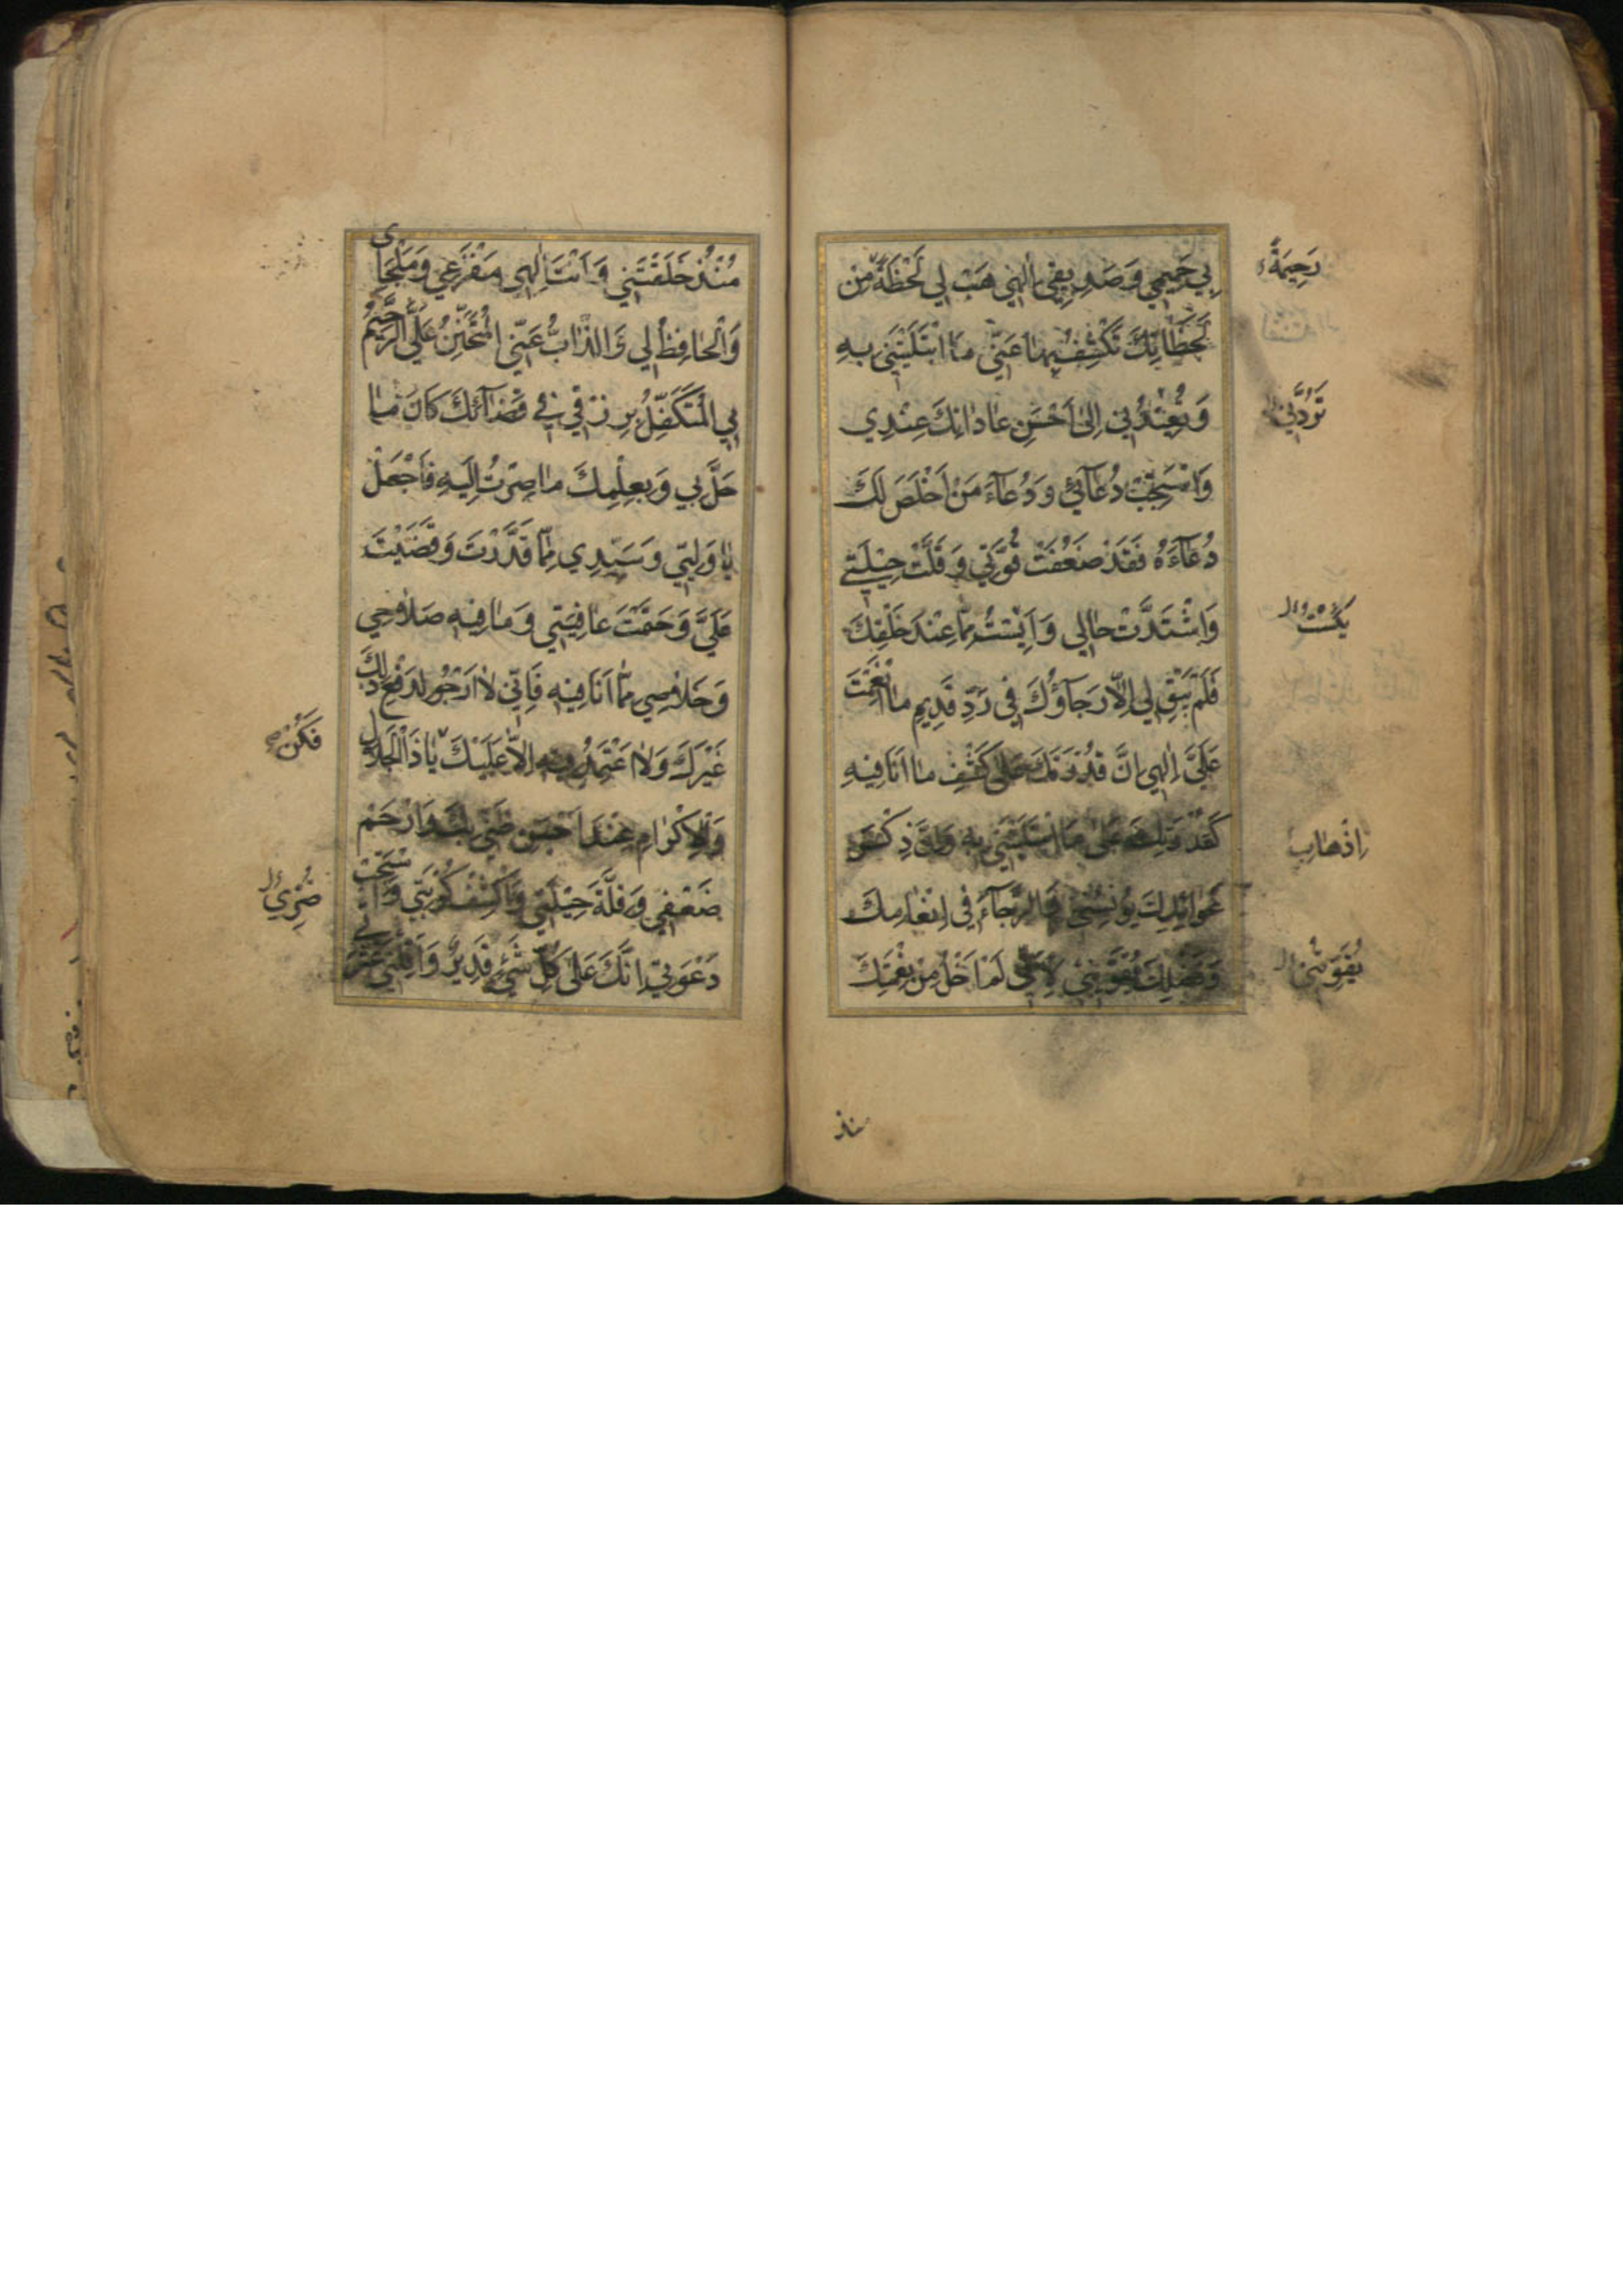 بِي حَمِيمِي وَصَدِيقِي اِلٰهِي هَبْ لِي لَحْظَةً مِنْ
لَحَظَاتِكَ تَكْشِفُ بِهَا عَنِّي مَا ابْتَلَيْتَنِي بِهِ
وَتُعِيدُنِي اِلىٰ اَحْسَنِ عَادَاتِكَ عِنْدِي
وَاسْتَجِبْ دُعَآئِي وَدُعَآءَ مَنْ اَخْلَصَ لَكَ
دُعَآءَهُ فَقَدْ ضَعُفَتْ قُوَّتِي وَقَلَّتْ حِيلَتِي
وَاشْتَدَّتْ حَالِي وَاَيِسْتُ مِمَّا عِنْدَ خَلْقِكَ
فَلَمْ يَبْقَ لِي اِلَّا رَجَآؤُكَ فِي رَدِّ قَدِيمِ مَا اَنْعَمْتَ
عَلَيَّ اِلٰهِي اِنَّ قُدْرَتَكَ عَلىٰ كَشْفِ مَا اَنَا فِيهِ
كَقُدْرَتِكَ عَلىٰ مَا ابْتَلَيْتَنِي بِهِ وَاِنَّ ذِكْرَ
عَوَائِدِكَ يُونِسُنِي وَالرَّجَآءَ فِي اِنْعَامِكَ
وَفَضْلِكَ يُقَوِّينِي لِاَنِّي لَمْ اَخْلُ مِنْ نِعْمَتِكَ
رَحِيمَةً
تَرُدَّنِي
يَئِسْتُ
يُقَوِّينِي
منذ
مُنْذُ خَلَقْتَنِي وَاَنْتَ اِلٰهِي مَفْزَعِي وَمَلْجَأِي
وَالْحَافِظُ لِي وَالذَّابُّ عَنِّي الْمُتَحَنِّنُ عَلَيَّ الرَّحِيمُ
بِي الْمُتَكَفِّلُ بِرِزْقِي فِي قَضَآئِكَ كَانَ مَا
حَلَّ بِي وَبِعِلْمِكَ مَا صِرْتُ اِلَيْهِ فَاجْعَلْ
يَا وَلِيِّي وَسَيِّدِي مِمَّا قَدَّرْتَ وَقَضَيْتَ
عَلَيَّ وَحَتَمْتَ عَافِيَتِي وَمَا فِيهِ صَلَاحِي
وَخَلَاصِي مِمَّا اَنَا فِيهِ فَاِنِّي لَا اَرْجُو لِدَفْعِ ذٰلِكَ
غَيْرَكَ وَلَا اَعْتَمِدُ فِيهِ اِلَّا عَلَيْكَ يَا ذَا الْجَلَالِ
وَالْاِكْرَامِ عِنْدَ اَحْسَنِ ظَنِّي بِكَ وَارْحَمْ
ضَعْفِي وَقِلَّةَ حِيلَتِي وَاكْشِفْ كُرْبَتِي وَاسْتَجِبْ
دَعْوَتِي اِنَّكَ عَلىٰ كُلِّ شَيْءٍ قَدِيرٌ وَاَقِلْنِي عَثْرَتِي
فَكُنْ
ضُرِّي